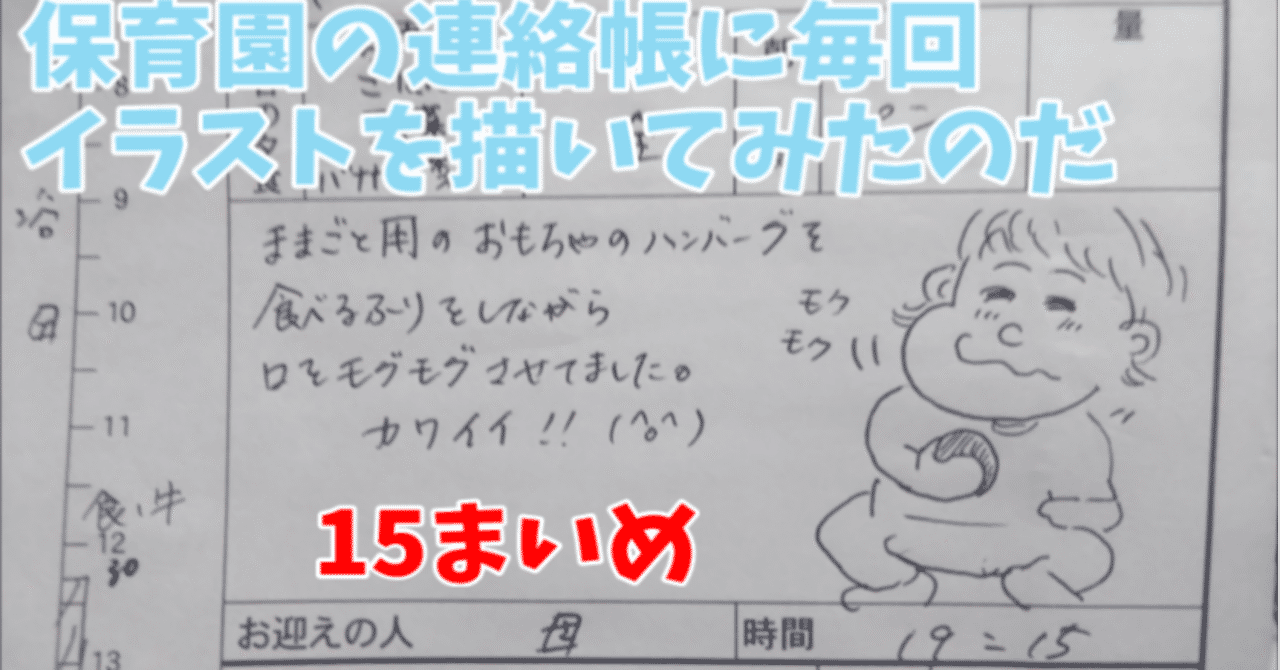 保育園の連絡帳に毎回
イラストを描いてみたのだ
量
8
9
10
母
11
食い牛
12
30
13
ままごと用の おもちゃのハンバーグを
食べるふりをしながら
口をモグモグさせてました。
カワイイ!! (^o^)
モク
モク
15まいめ
お迎えの人
母
時間
19=15